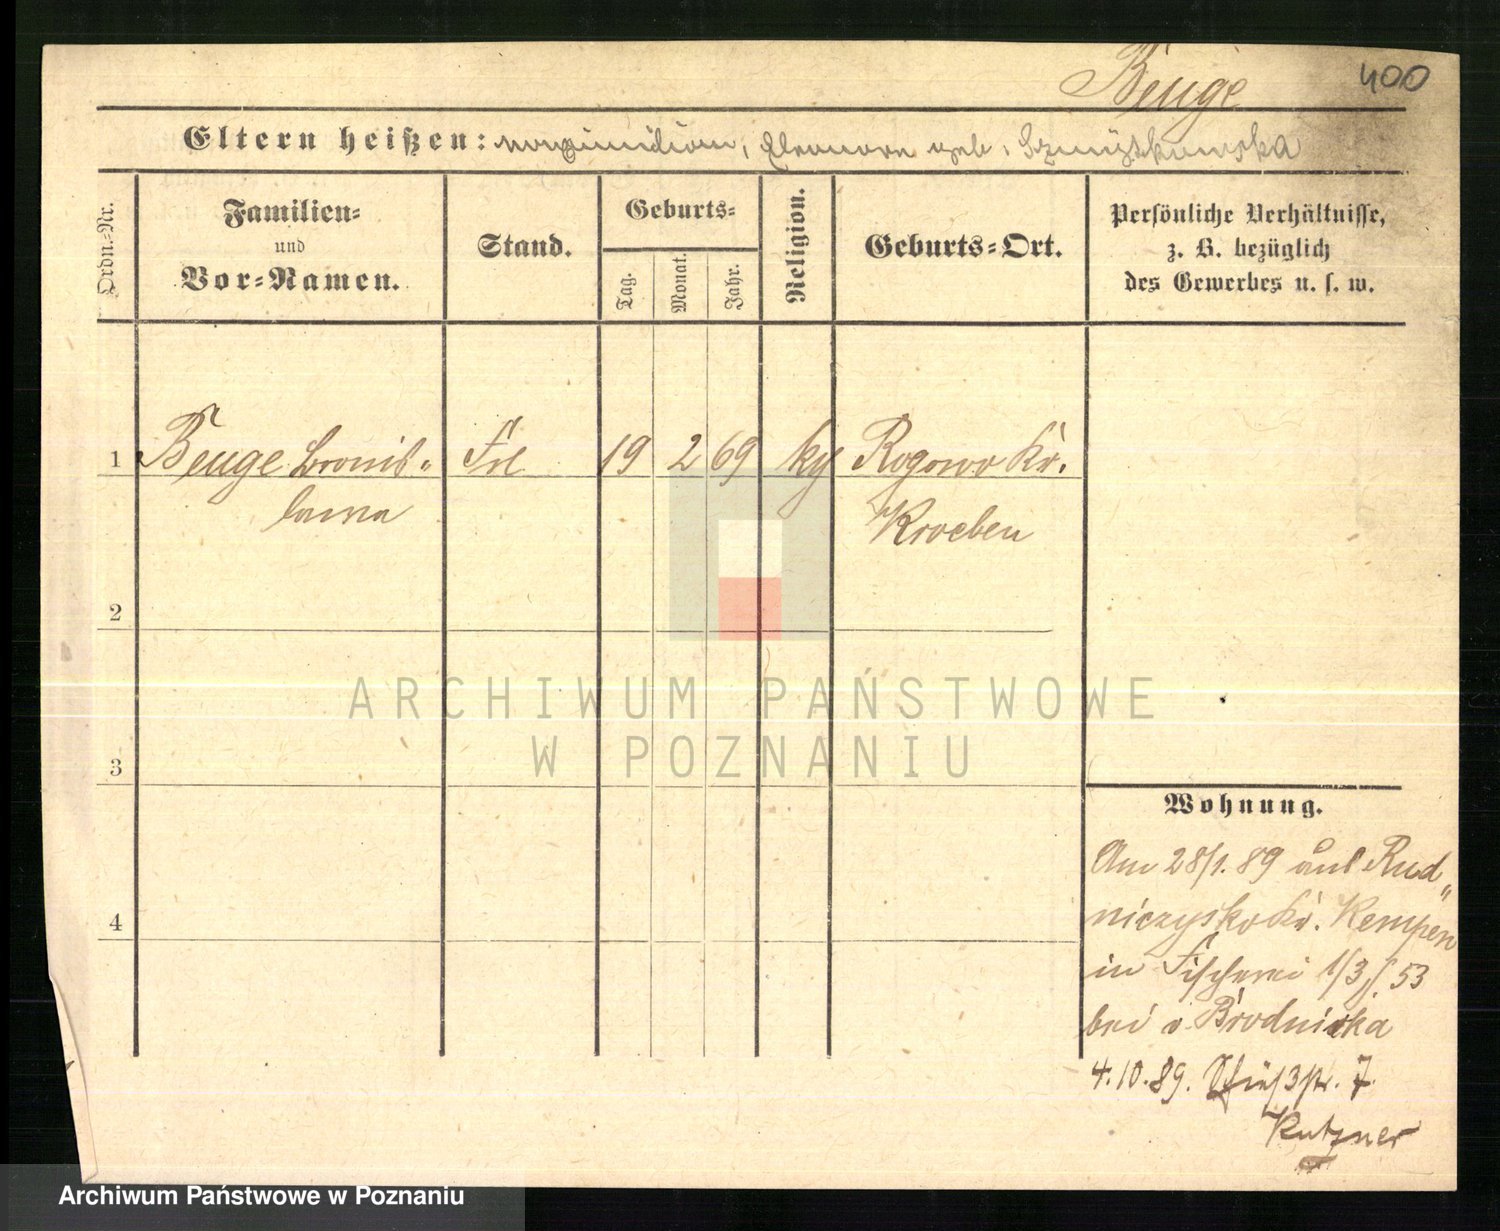 Beuge 400
Eltern heißen: Maximilian, Eleonore geb. Szmytkowska
Ordn.-Nr.
Familien-
und
Vor-Namen.
Stand.
Geburts-
Tag.
Monat.
Jahr.
Religion.
Geburts-Ort.
Persönliche Verhältnisse,
z. B. bezüglich
des Gewerbes u. s. w.
1 Beuge Bronis- Frl 19 2 69 kg Rogowo Kr.
lawa Kroeben
2
3
4
Wohnung.
Am 28/1. 89 aus Rud-
niczysko Kr. Kempen
in Fischerei 1/3 53
bei v. Brodnicka
4.10.89. 7
Kutzner
ARCHIWUM PAŃSTWOWE
W POZNANIU
Archiwum Państwowe w Poznaniu